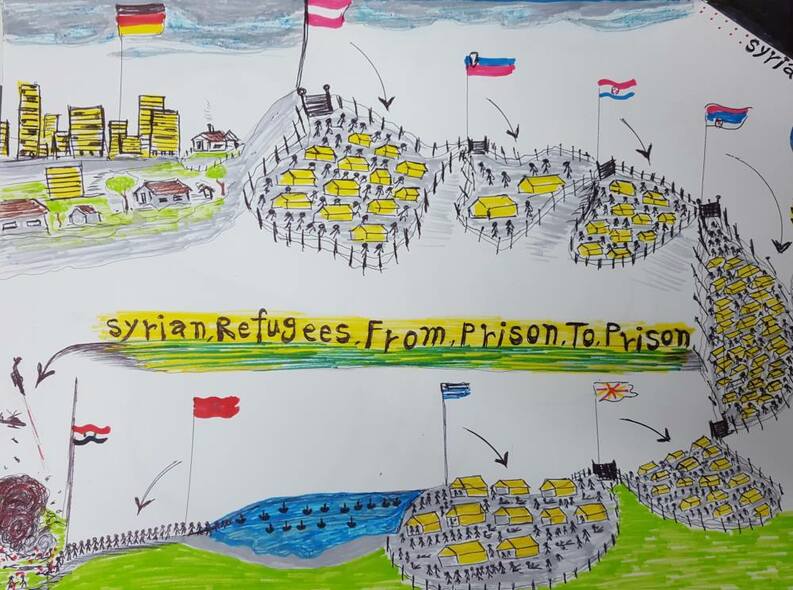 syria
syrian, Refugees, From, Prison, To, Prison